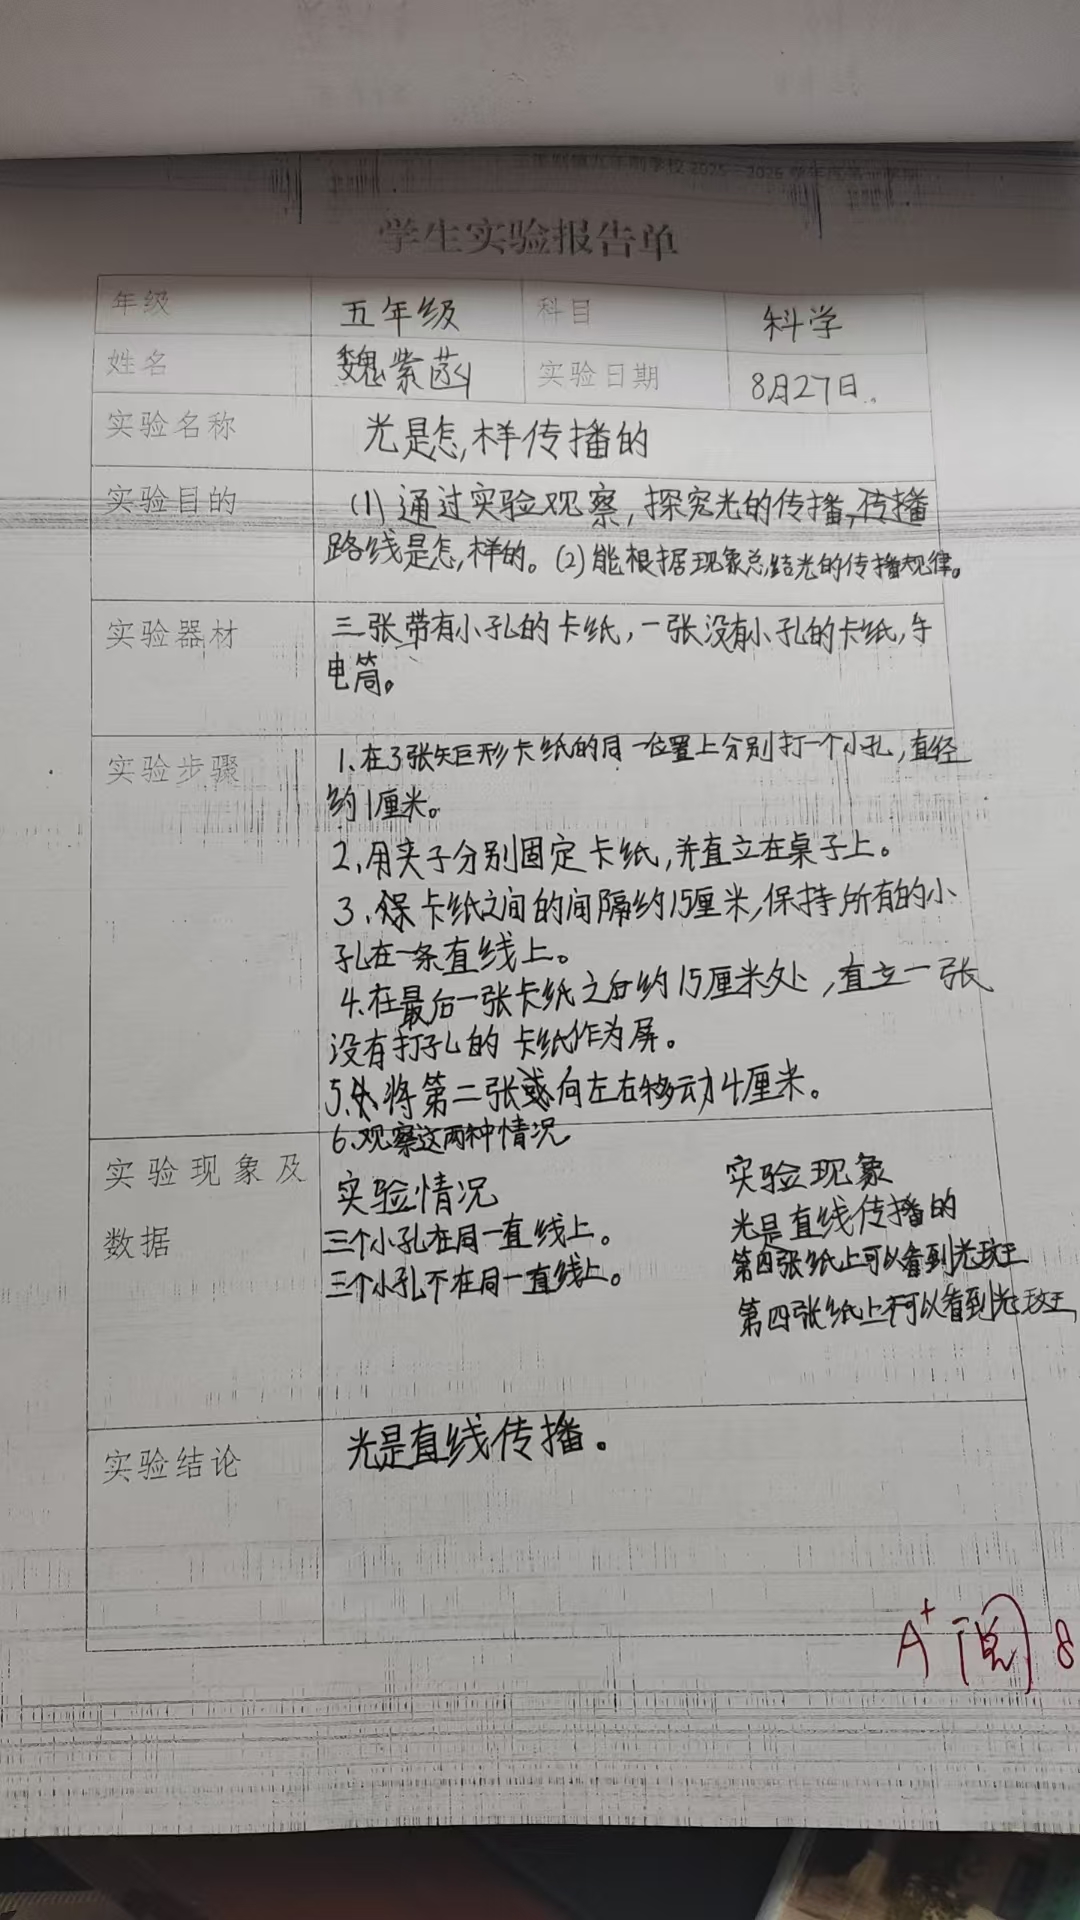 学校2025-2026学年度第一学期
学生实验报告单
年级 五年级 科目 科学
姓名 魏紫菡 实验日期 8月27日.
实验名称 光是怎样传播的
实验目的 (1)通过实验观察,探究光的传播,传播
路线是怎样的。(2)能根据现象总结光的传播规律。
实验器材 三张带有小孔的卡纸,一张没有小孔的卡纸,手
电筒。
实验步骤 1、在3张矩形卡纸的同一位置上分别打一个小孔,直径
约1厘米。
2、用夹子分别固定卡纸,并直立在桌子上。
3、保卡纸之间的间隔约15厘米,保持所有的小
孔在一条直线上。
4、在最后一张卡纸之后约15厘米处,直立一张
没有打孔的卡纸作为屏。
5、将第二张或向左右移动4厘米。
6、观察这两种情况
实验现象及 实验情况 实验现象
数据 三个小孔在同一直线上。 光是直线传播的
三个小孔不在同一直线上。 第四张纸上可以看到光斑
第四张纸上不可以看到光斑
实验结论 光是直线传播。
A+ 阅 8